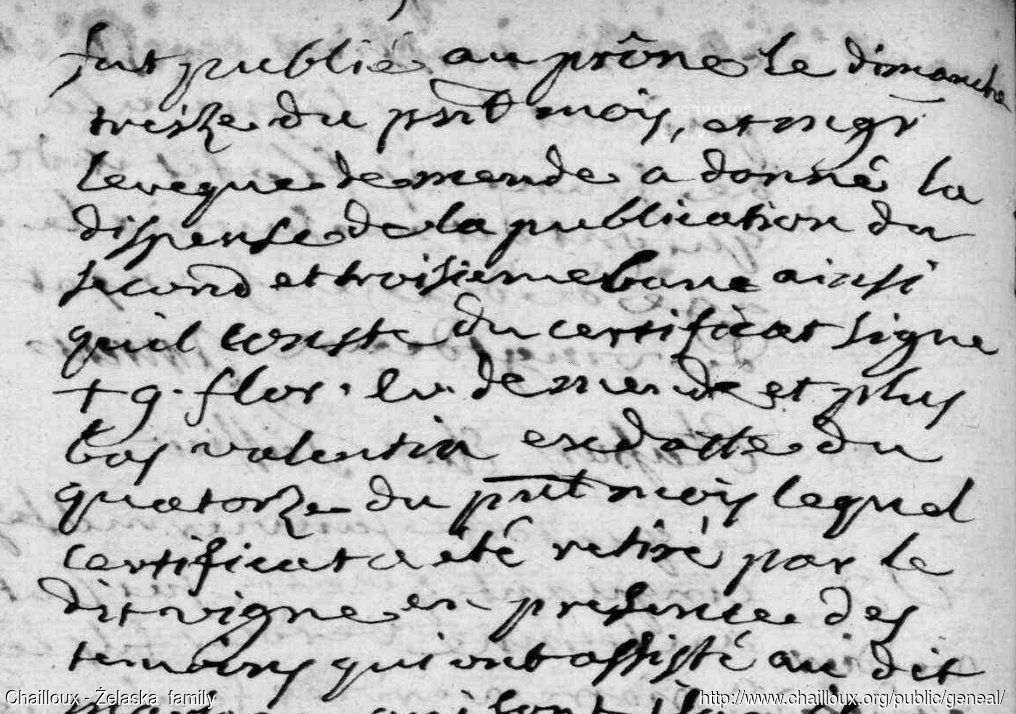 fut publié au prône le dimanche
treize du pnt mois, et mgr
leveque de mende a donné la
dispense de la publication du
second et troisieme banc ainsi
quil conste du certificat signe
+ g. flor. ev. de mende et plus
bas valentin en datte du
quatorze du pnt mois lequel
certificat a été retiré par le
dit vigne en presence des
temoins qui ont assisté au dit
Chailloux - Żelaska family
http://www.chailloux.org/public/geneal/